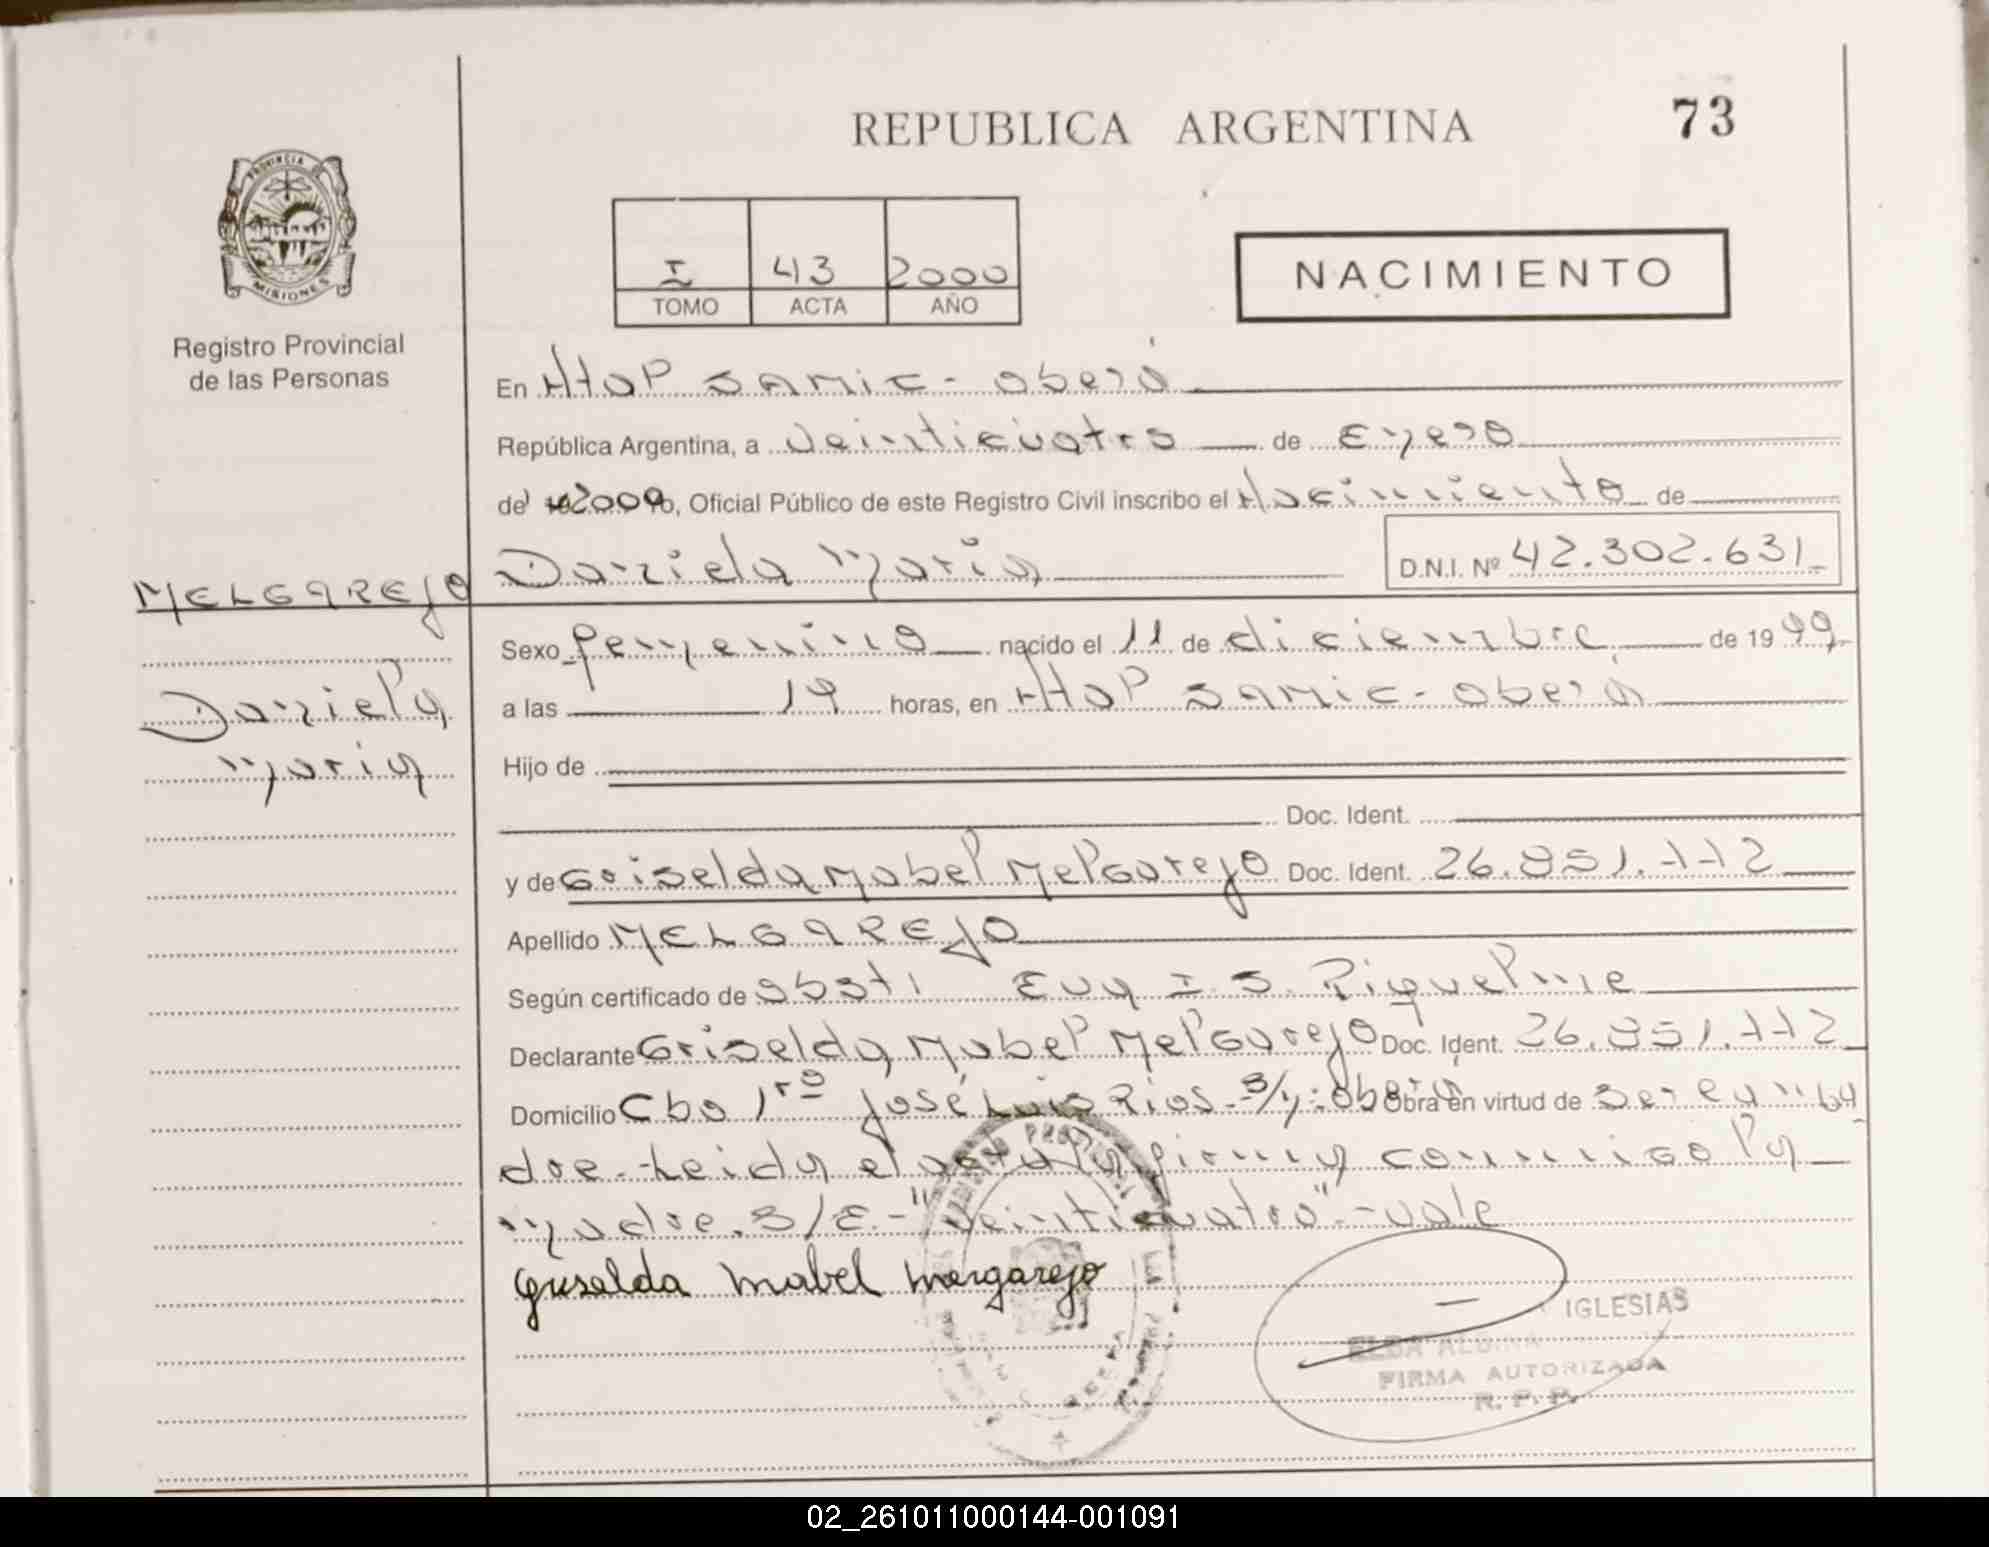 REPUBLICA ARGENTINA
73
PROVINCIA DE
MISIONES
Registro Provincial
de las Personas
I 43 2000
TOMO ACTA AÑO
NACIMIENTO
En Hop samic - oberá
República Argentina, a veinticuatro de Enero
de 2000, Oficial Público de este Registro Civil inscribo el Nacimiento de
Daniela Maria D.N.I. Nº 42.302.631
MELGAREJO
Daniela
Maria
Sexo femenino nacido el 11 de diciembre de 1999
a las 19 horas, en Hop samic - oberá
Hijo de
Doc. Ident.
y de Griselda Mabel Melgarejo Doc. Ident. 26.851.772
Apellido MELGAREJO
Según certificado de obst. Eva I. S. Riquelme
Declarante Griselda Mabel Melgarejo Doc. Ident. 26.851.772
Domicilio Cbo 1ro José Luis Rios - s/n: Oberá Obra en virtud de ser la ma
dre - Leida el acta la firma conmigo la
madre. S/E.- "veinticuatro" - vale
Griselda Mabel Mergarejo
IGLESIAS
ELBA
FIRMA AUTORIZADA
R. P. P.
02_261011000144-001091